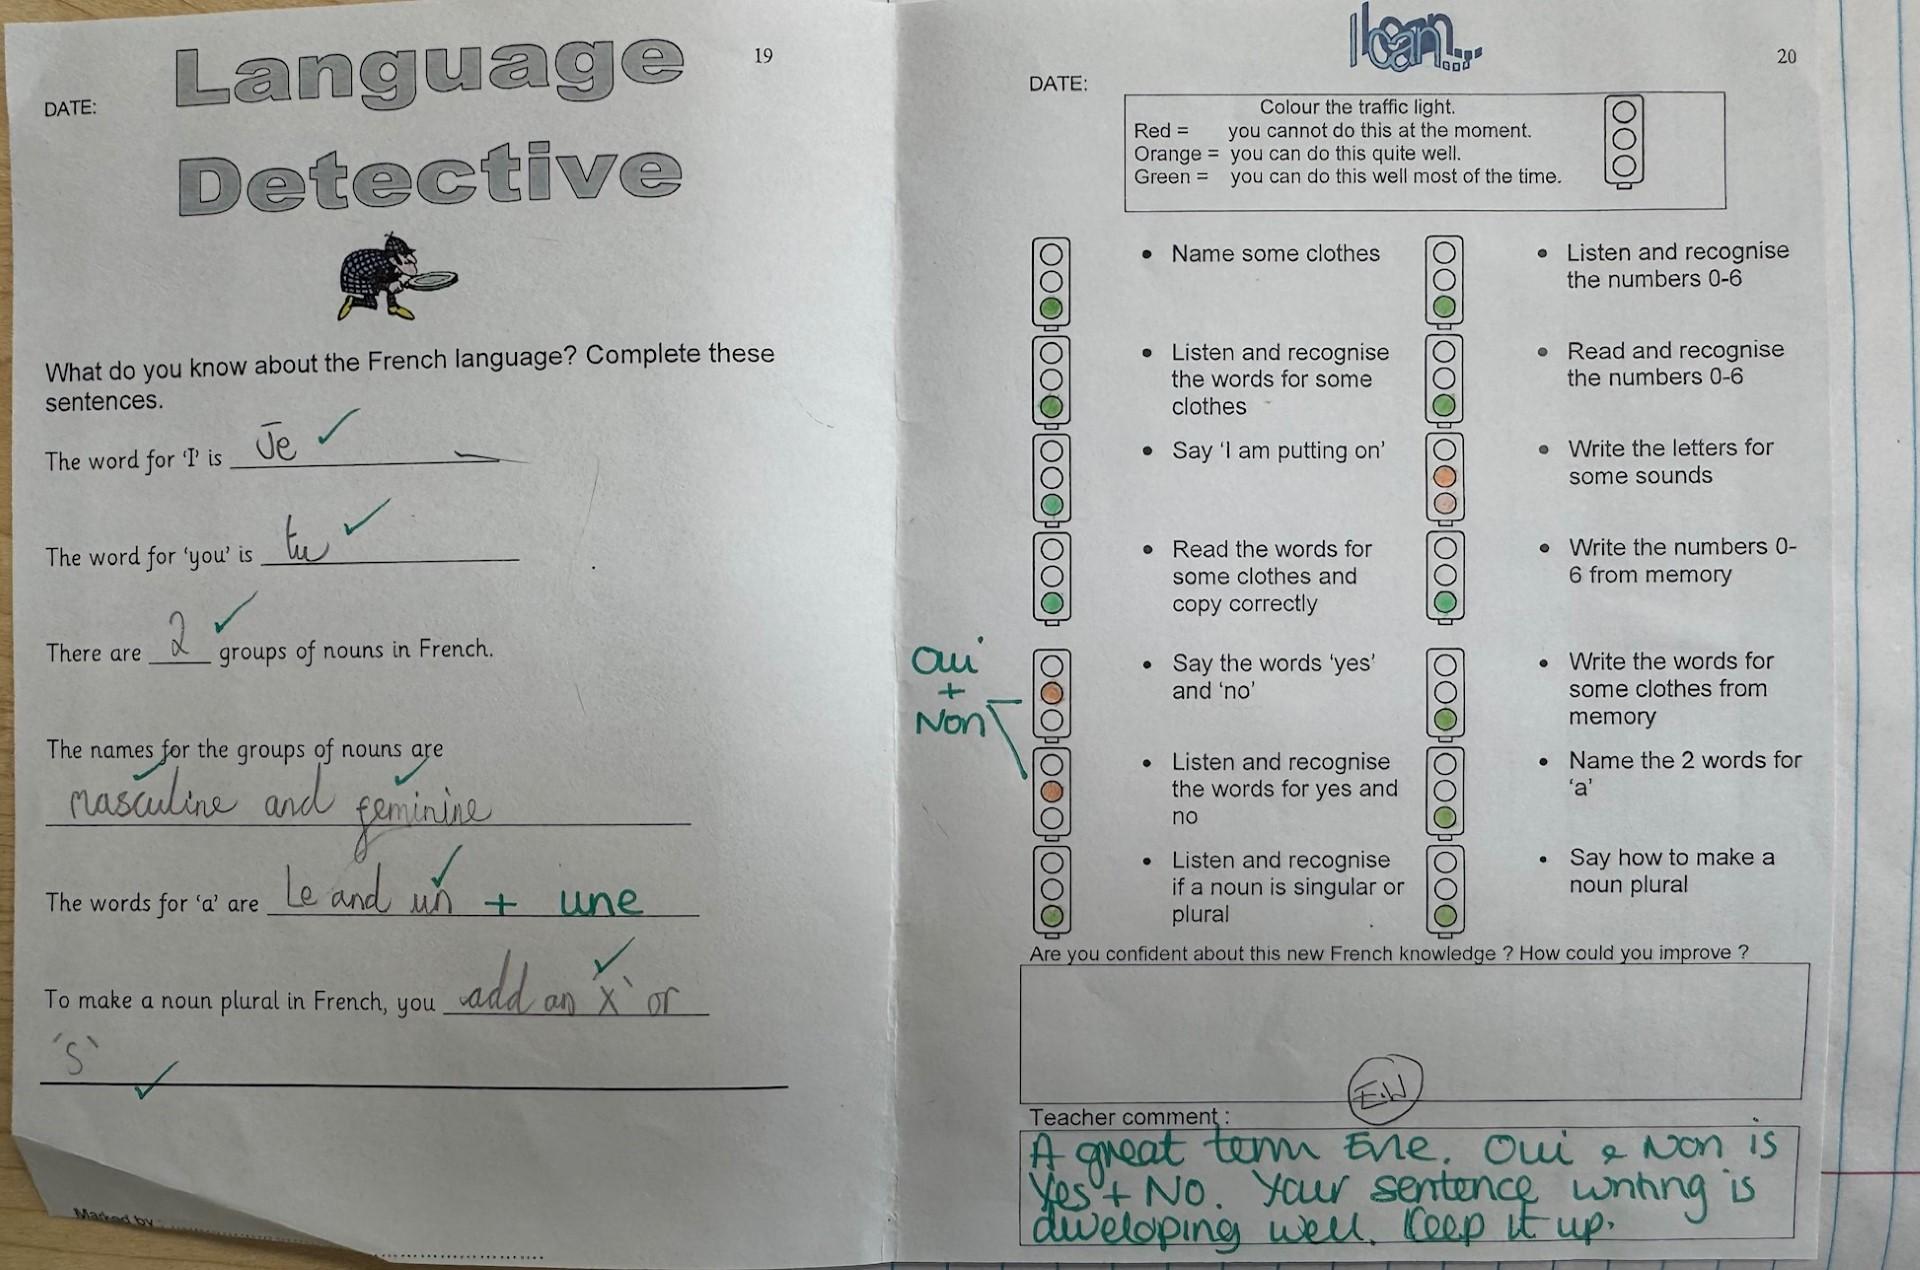 Language
19
DATE:
Detective
What do you know about the French language? Complete these
sentences.
The word for 'I' is Je
The word for 'you' is tu
There are 2 groups of nouns in French.
The names for the groups of nouns are
masculine and feminine
The words for 'a' are Le and un + une
To make a noun plural in French, you add an 'x' or
's'
Marked by
I can...
20
DATE:
Colour the traffic light.
Red = you cannot do this at the moment.
Orange = you can do this quite well.
Green = you can do this well most of the time.
• Name some clothes
• Listen and recognise
the words for some
clothes
• Say 'I am putting on'
• Read the words for
some clothes and
copy correctly
Oui
+
Non
• Say the words 'yes'
and 'no'
• Listen and recognise
the words for yes and
no
• Listen and recognise
if a noun is singular or
plural
• Listen and recognise
the numbers 0-6
• Read and recognise
the numbers 0-6
• Write the letters for
some sounds
• Write the numbers 0-
6 from memory
• Write the words for
some clothes from
memory
• Name the 2 words for
'a'
• Say how to make a
noun plural
Are you confident about this new French knowledge ? How could you improve ?
E.W
Teacher comment :
A great term Evie. Oui & Non is
Yes + No. Your sentence writing is
developing well. Keep it up.